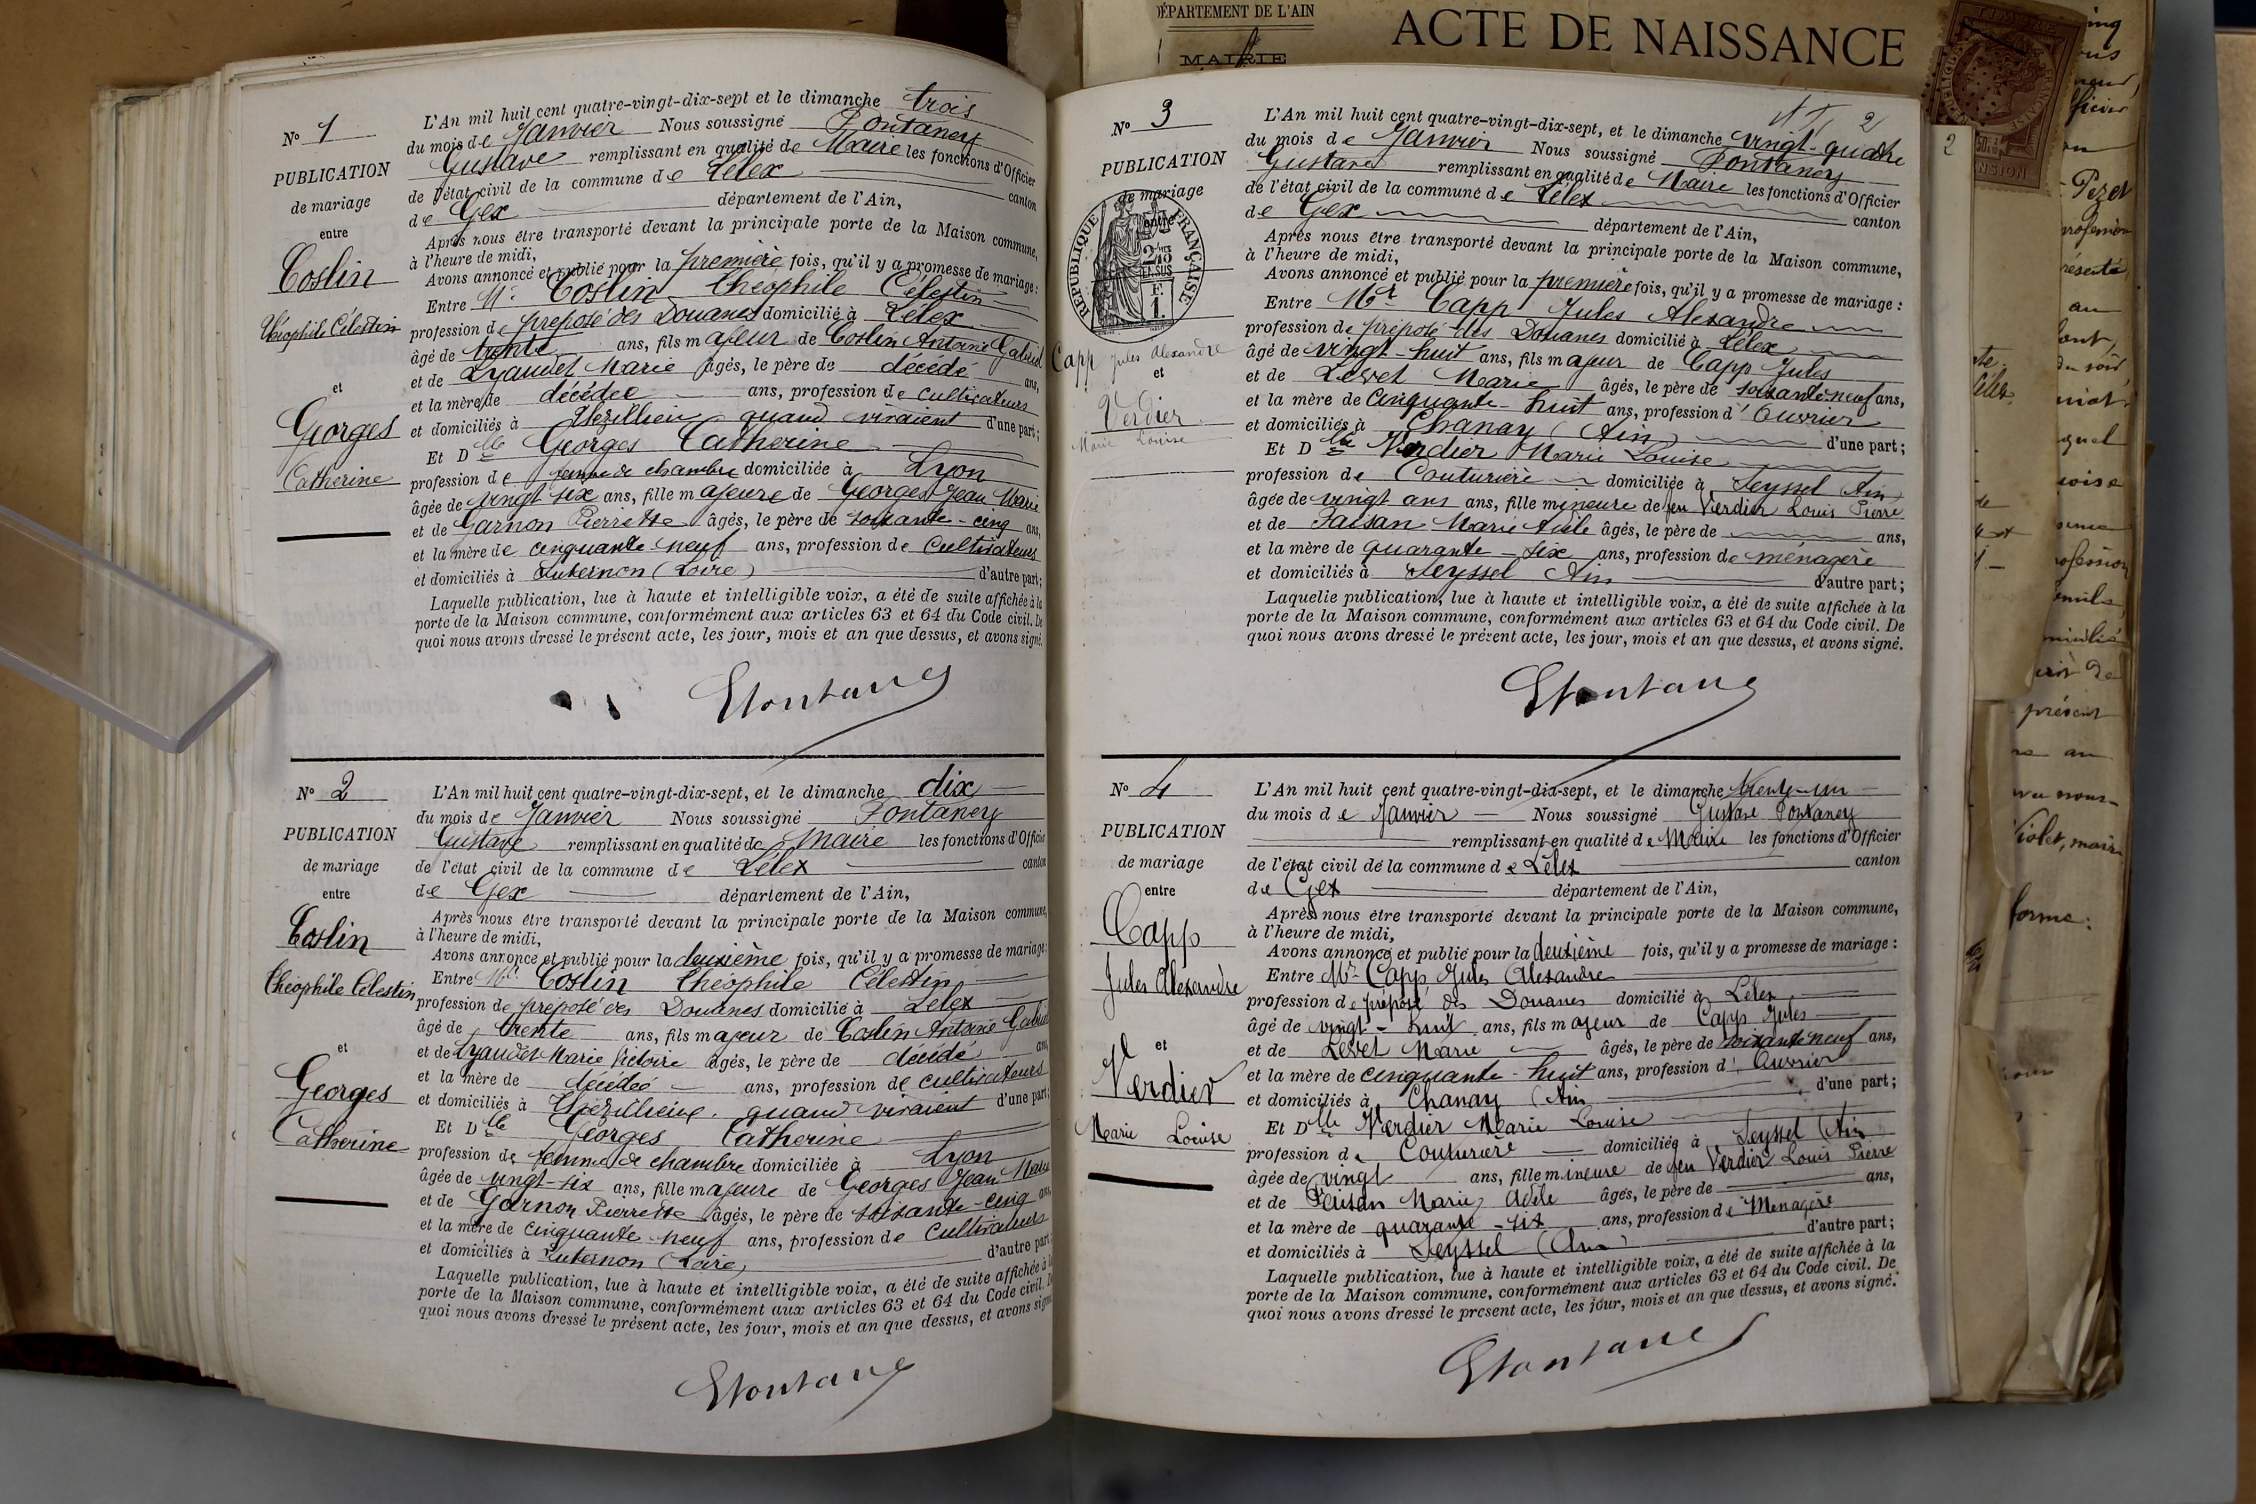 N° 1
PUBLICATION
de mariage
entre
Coslin
Théophile Célestin
et
Georges
Catherine
L'An mil huit cent quatre-vingt-dix-sept et le dimanche trois
du mois de Janvier Nous soussigné Fontaney
Gustave remplissant en qualité de Maire les fonctions d'Officier
de l'état civil de la commune de Lélex canton
de Gex département de l'Ain,
Après nous être transporté devant la principale porte de la Maison commune,
à l'heure de midi,
Avons annoncé et publié pour la première fois, qu'il y a promesse de mariage :
Entre Mr Coslin Théophile Célestin
profession de préposé des Douanes domicilié à Lélex
âgé de trente ans, fils majeur de Coslin Antoine Gabriel
et de Lyaudet Marie âgés, le père de décédé ans,
et la mère de décédée ans, profession de cultivateurs
et domiciliés à quand vivaient d'une part ;
Et Dlle Georges Catherine
profession de femme de chambre domiciliée à Lyon
âgée de vingt six ans, fille majeure de Georges Jean Marie
et de Garnon Pierrette âgés, le père de soixante-cinq ans,
et la mère de cinquante neuf ans, profession de Cultivateurs
et domiciliés à Luternon (Loire) d'autre part ;
Laquelle publication, lue à haute et intelligible voix, a été de suite affichée à la
porte de la Maison commune, conformément aux articles 63 et 64 du Code civil. De
quoi nous avons dressé le présent acte, les jour, mois et an que dessus, et avons signé.
GFontaney
N° 2
PUBLICATION
de mariage
entre
Coslin
Théophile Célestin
et
Georges
Catherine
L'An mil huit cent quatre-vingt-dix-sept, et le dimanche dix
du mois de Janvier Nous soussigné Fontaney
Gustave remplissant en qualité de Maire les fonctions d'Officier
de l'état civil de la commune de Lélex canton
de Gex département de l'Ain,
Après nous être transporté devant la principale porte de la Maison commune,
à l'heure de midi,
Avons annoncé et publié pour la deuxième fois, qu'il y a promesse de mariage :
Entre Mr Coslin Théophile Célestin
profession de préposé des Douanes domicilié à Lélex
âgé de trente ans, fils majeur de Coslin Antoine Gabriel
et de Lyaudet Marie Victoire âgés, le père de décédé ans,
et la mère de décédée ans, profession de cultivateurs
et domiciliés à quand vivaient d'une part ;
Et Dlle Georges Catherine
profession de femme de chambre domiciliée à Lyon
âgée de vingt-six ans, fille majeure de Georges Jean Marie
et de Garnon Pierrette âgés, le père de soixante-cinq ans,
et la mère de cinquante-neuf ans, profession de Cultivateurs
et domiciliés à Luternon (Loire) d'autre part
Laquelle publication, lue à haute et intelligible voix, a été de suite affichée à la
porte de la Maison commune, conformément aux articles 63 et 64 du Code civil. De
quoi nous avons dressé le présent acte, les jour, mois et an que dessus, et avons signé
GFontaney
DÉPARTEMENT DE L'AIN
MAIRIE
ACTE DE NAISSANCE
2
2
N° 3
PUBLICATION
de mariage
entre
RÉPUBLIQUE FRANÇAISE
Capp Jules Alexandre
et
Verdier
Marie Louise
L'An mil huit cent quatre-vingt-dix-sept, et le dimanche vingt-quatre
du mois de Janvier Nous soussigné Fontaney
Gustave remplissant en qualité de Maire les fonctions d'Officier
de l'état civil de la commune de Lélex canton
de Gex département de l'Ain,
Après nous être transporté devant la principale porte de la Maison commune,
à l'heure de midi,
Avons annoncé et publié pour la première fois, qu'il y a promesse de mariage :
Entre Mr Capp Jules Alexandre
profession de préposé des Douanes domicilié à Lélex
âgé de vingt-huit ans, fils majeur de Capp Jules
et de Levet Marie âgés, le père de soixante-neuf ans,
et la mère de Cinquante-huit ans, profession d'Ouvrier
et domiciliés à Chanay (Ain) d'une part ;
Et Dlle Verdier Marie Louise
profession de Couturière domiciliée à Seyssel Ain
âgée de vingt ans ans, fille mineure de feu Verdier Louis Pierre
et de Paisan Marie Adèle âgés, le père de ans,
et la mère de quarante-six ans, profession de ménagère
et domiciliés à Seyssel Ain d'autre part ;
Laquelle publication, lue à haute et intelligible voix, a été de suite affichée à la
porte de la Maison commune, conformément aux articles 63 et 64 du Code civil. De
quoi nous avons dressé le présent acte, les jour, mois et an que dessus, et avons signé.
GFontaney
N° 4
PUBLICATION
de mariage
entre
Capp
Jules Alexandre
et
Verdier
Marie Louise
L'An mil huit cent quatre-vingt-dix-sept, et le dimanche trente-un
du mois de Janvier Nous soussigné Gustave Fontaney
remplissant en qualité de Maire les fonctions d'Officier
de l'état civil de la commune de Lélex canton
de Gex département de l'Ain,
Après nous être transporté devant la principale porte de la Maison commune,
à l'heure de midi,
Avons annoncé et publié pour la deuxième fois, qu'il y a promesse de mariage :
Entre Mr Capp Jules Alexandre
profession de préposé des Douanes domicilié à Lélex
âgé de vingt-huit ans, fils majeur de Capp Jules
et de Levet Marie âgés, le père de soixante neuf ans,
et la mère de cinquante-huit ans, profession d'Ouvrier
et domiciliés à Chanay (Ain d'une part ;
Et Dlle Verdier Marie Louise
profession de Couturière domiciliée à Seyssel (Ain
âgée de vingt ans, fille mineure de feu Verdier Louis Pierre
et de Paisan Marie Adèle âgés, le père de ans,
et la mère de quarante-six ans, profession de Ménagère
et domiciliés à Seyssel (Ain) d'autre part ;
Laquelle publication, lue à haute et intelligible voix, a été de suite affichée à la
porte de la Maison commune, conformément aux articles 63 et 64 du Code civil. De
quoi nous avons dressé le présent acte, les jour, mois et an que dessus, et avons signé.
GFontaney